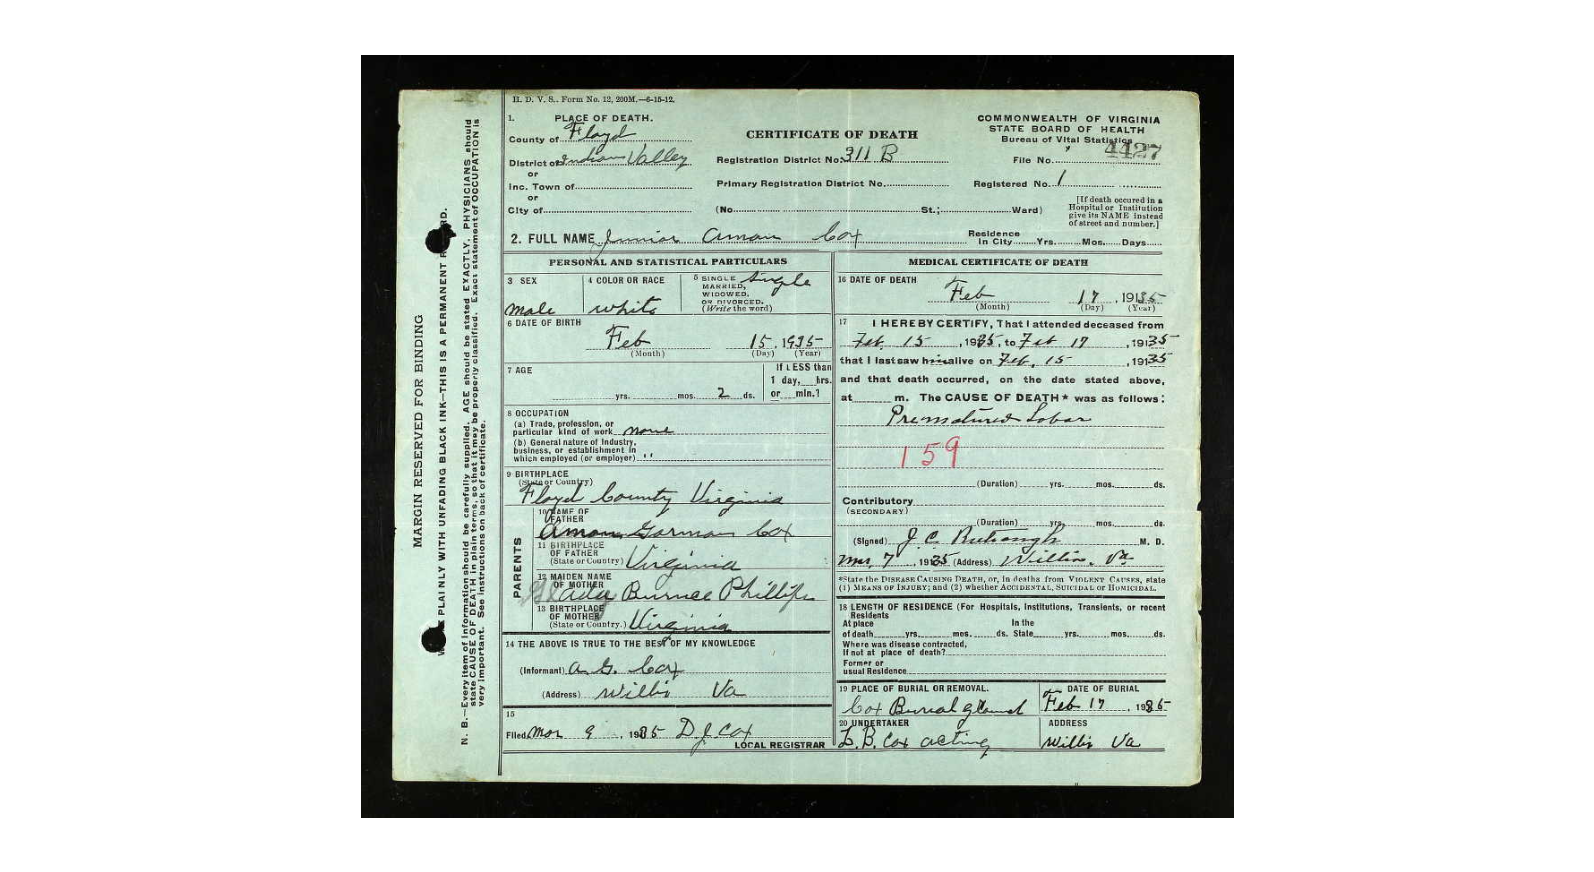 H. D. V. S.. Form No. 12, 200M.—6-15-12.
1. PLACE OF DEATH.
County of Floyd
District of Indian Valley
or
Inc. Town of
or
City of
CERTIFICATE OF DEATH
Registration District No. 311 B
Primary Registration District No.
(No. St.; Ward)
COMMONWEALTH OF VIRGINIA
STATE BOARD OF HEALTH
Bureau of Vital Statistics
File No. 4427
Registered No. 1
[If death occured in a
Hospital or Institution
give its NAME instead
of street and number.]
2. FULL NAME Junior Aman Cox
Residence
In City Yrs. Mos. Days
PERSONAL AND STATISTICAL PARTICULARS
3 SEX
male
4 COLOR OR RACE
white
5 SINGLE
MARRIED,
WIDOWED,
OR DIVORCED.
(Write the word)
Single
6 DATE OF BIRTH
Feb 15, 1935
(Month) (Day) (Year)
7 AGE
yrs. mos. 2 ds.
If LESS than
1 day, hrs.
or min.?
8 OCCUPATION
(a) Trade, profession, or
particular kind of work none
(b) General nature of Industry,
business, or establishment in
which employed (or employer) "
9 BIRTHPLACE
(State or Country)
Floyd County Virginia
PARENTS
10 NAME OF
FATHER
Aman Garman Cox
11 BIRTHPLACE
OF FATHER
(State or Country) Virginia
12 MAIDEN NAME
OF MOTHER
Ada Burnee Phillips
13 BIRTHPLACE
OF MOTHER
(State or Country.) Virginia
14 THE ABOVE IS TRUE TO THE BEST OF MY KNOWLEDGE
(Informant) A. G. Cox
(Address) Willis Va
15
Filed Mar 9, 1935 D J Cox
LOCAL REGISTRAR
MEDICAL CERTIFICATE OF DEATH
16 DATE OF DEATH
Feb 17, 1935
(Month) (Day) (Year)
17 I HEREBY CERTIFY, That I attended deceased from
Feb. 15, 1935, to Feb 17, 1935
that I last saw him alive on Feb. 15 1935
and that death occurred, on the date stated above,
at m. The CAUSE OF DEATH * was as follows:
Prematured Labor
159
(Duration) yrs. mos. ds.
Contributory
(SECONDARY)
(Duration) yrs. mos. ds.
(Signed) J. C. M. D.
Mar 7, 1935 (Address) Willis, Va
*State the DISEASE CAUSING DEATH, or, in deaths from VIOLENT CAUSES, state
(1) MEANS OF INJURY; and (2) whether ACCIDENTAL, SUICIDAL or HOMICIDAL.
18 LENGTH OF RESIDENCE (For Hospitals, Institutions, Transients, or recent
Residents
At place In the
of death yrs. mos. ds. State yrs. mos. ds.
Where was disease contracted,
If not at place of death?
Former or
usual Residence
19 PLACE OF BURIAL OR REMOVAL.
Cox Burial ground
DATE OF BURIAL
Feb 17, 1935
20 UNDERTAKER
L. B. Cox acting
ADDRESS
Willis Va
MARGIN RESERVED FOR BINDING
PLAINLY WITH UNFADING BLACK INK—THIS IS A PERMANENT RD.
N. B.—Every item of information should be carefully supplied. AGE should be stated EXACTLY. PHYSICIANS should
state CAUSE OF DEATH in plain terms, so that it may be properly classified. Exact statement of OCCUPATION is
very important. See instructions on back of certificate.